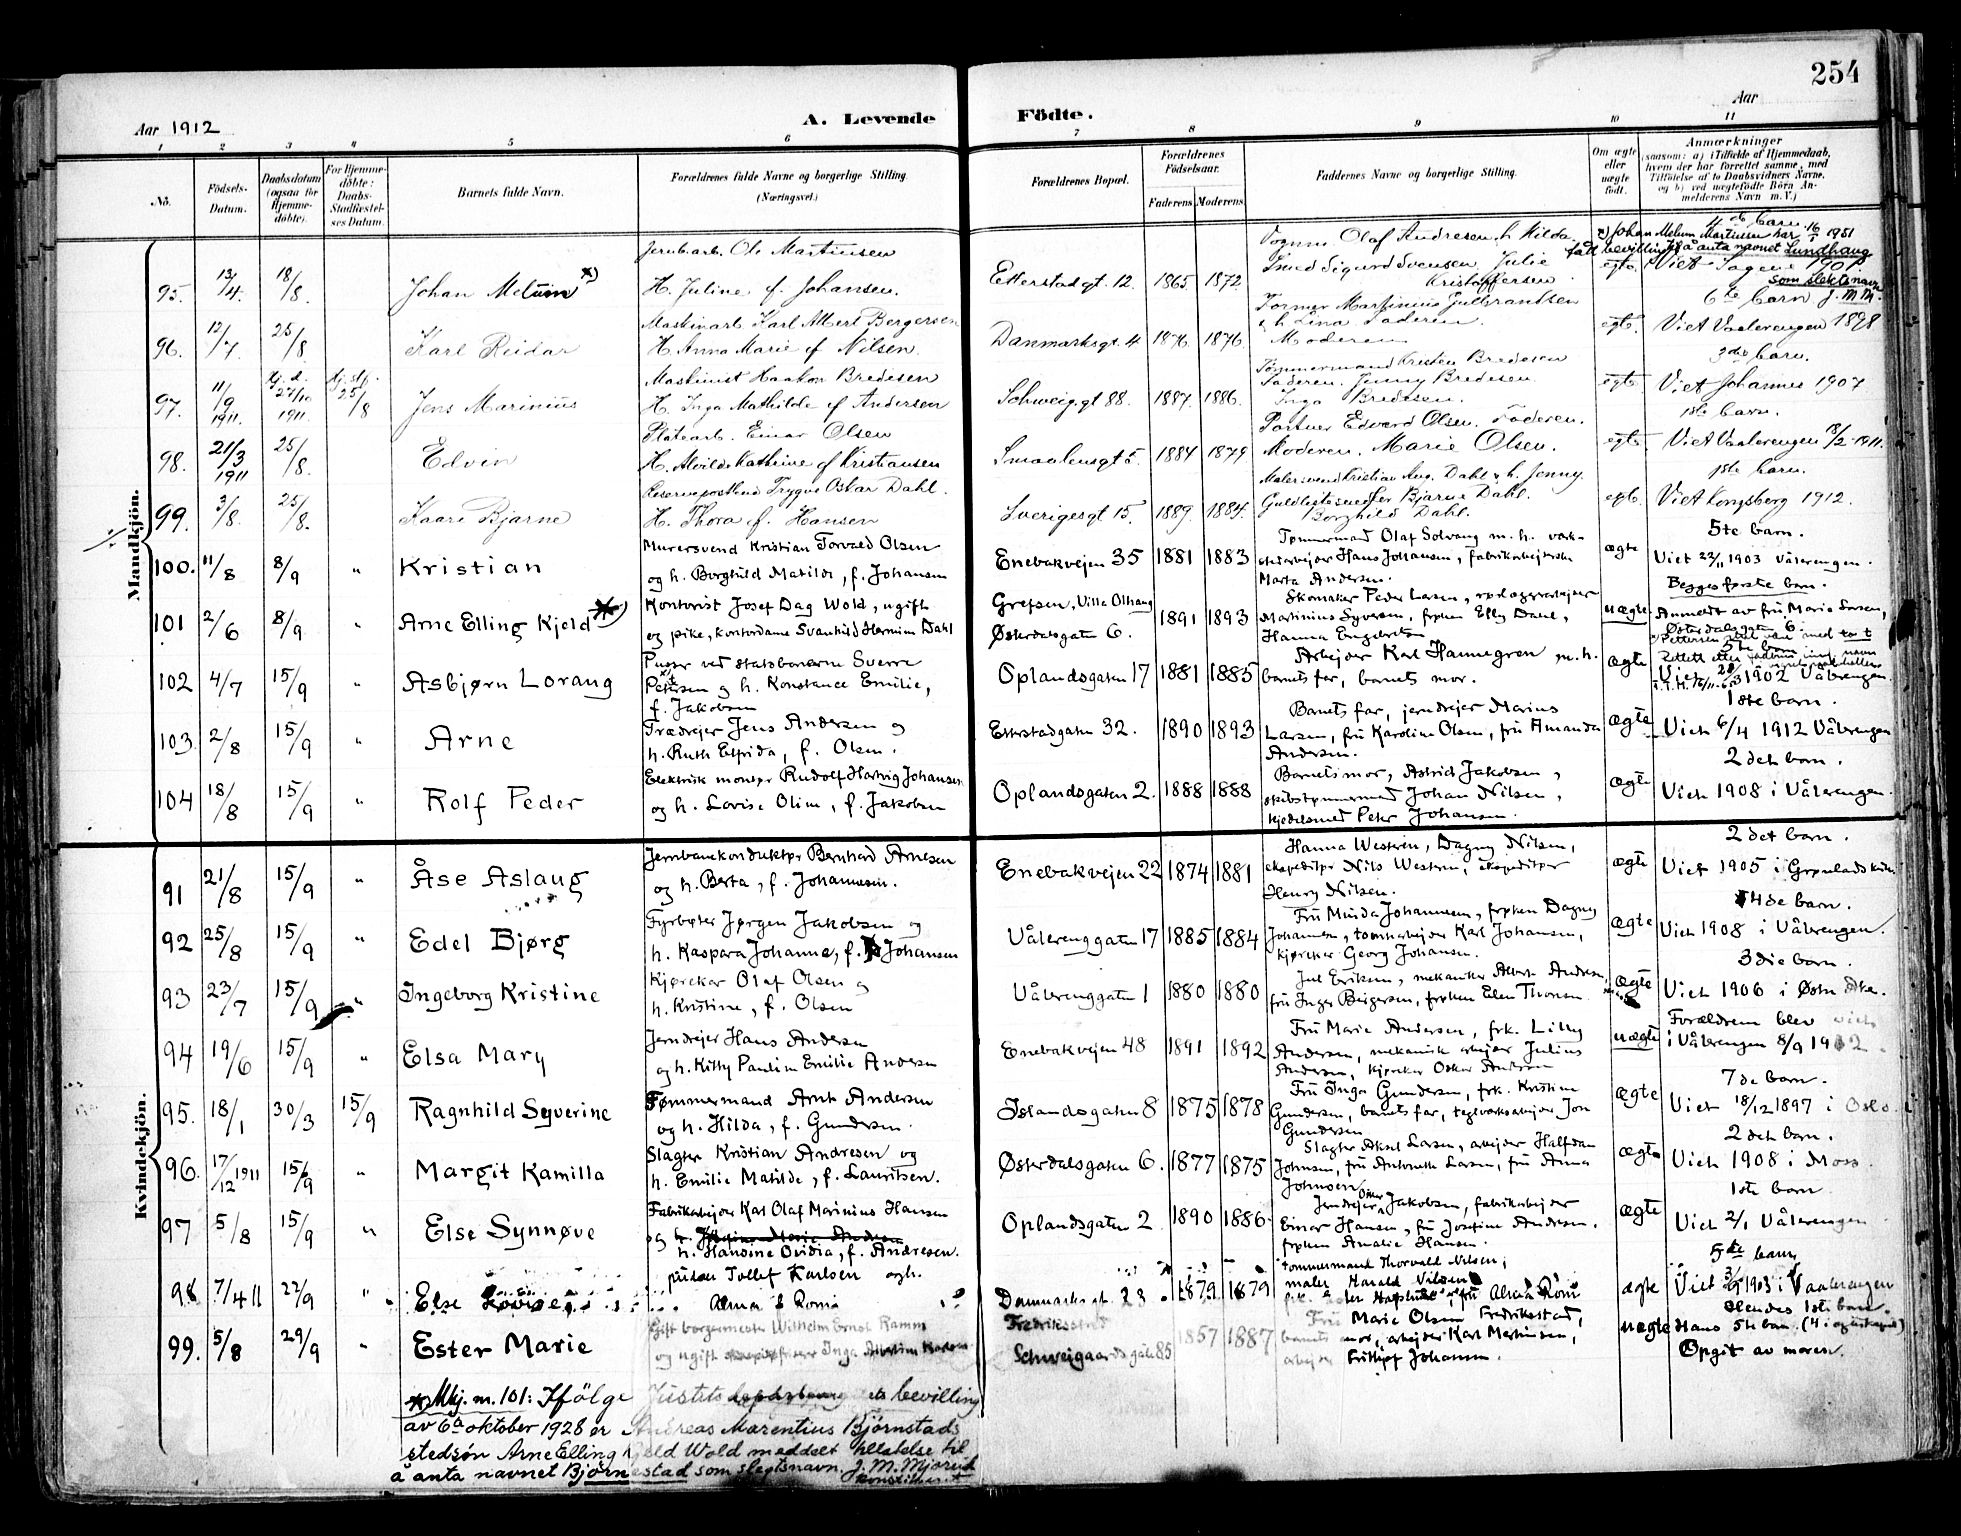 254
Aar 1912
A. Levende Födte.
Aar
1 2 3 4 5 6 7 8 9 10 11
No.
Födsels-Datum.
Daabsdatum (ogsaa for Hjemme-döbte).
For Hjemme-döbte: Daabs-Stadfæstel-ses Datum.
Barnets fulde Navn.
Forældrenes fulde Navne og borgerlige Stilling. (Næringsvei.)
Forældrenes Bopæl.
Forældrenes Födselsaar.
Faderens Moderens
Faddernes Navne og borgerlige Stilling.
Om ægte eller uægte födt.
Anmærkninger
(saasom: a) i Tilfælde af Hjemmedaab, hvem der har forrettet samme, med Tilföielse af to Daabsvidners Navne, og b) ved uægtefödte Börn Anmelderens Navn m. V.)
Mandkjön.
x) Johan Melum Martinsen har 16/1 1951
fått bevilling til å anta navnet Lundhaug
som slektsnavn J. M. M.
95. 13/4. 18/8. Johan Melum x)
Jernbarb. Ole Martinsen
H. Juline f. Johansen.
Etterstadgt. 12. 1865. 1872.
Vognm. Olaf Andresen, h. Hilda
Smed Sigurd Svensen, Julie
Kristoffersen
egte. Viet 1901.
96. 12/7. 25/8. Karl Reidar
Maskinarb. Karl Albert Bergersen
H. Anna Marie f. Nilsen.
Danmarksgt. 4 1876. 1876.
Former Martinius Gulbrantsen
& h. Lina. Faderen.
Moderen
egte. 6te barn
Viet Vaalerengen 1898
97. 11/9 1911. Hj. d. 27/10 1911. Hj. stf. 25/8 Jens Marinius
Maskinist Haakon Bredesen
H. Inga Mathilde f. Andersen
Schweig.gt 88. 1887. 1886.
Tömmermand Kristen Bredesen
Faderen. Jenny Bredesen.
Inga Bredesen.
egte. 3die barn.
Viet Johannes 1907
98. 21/3 1911 25/8. Edvin
Platearb. Einar Olsen
H. Alvilde Kathrine f. Kristiansen
Smaalensgt 5. 1884 1879
Portner Edvard Olsen. Faderen.
Moderen. Marie Olsen.
egte. 1ste barn.
Viet Vaalerengen 18/2 1911.
99. 3/8. 25/8. Kaare Bjarne
Reservepostbud Trygve Oskar Dahl.
H. Thora f. Hansen
Sverigesgt 15. 1889. 1884.
Malersvend Kristian Aug. Dahl & h. Jenny.
Guldlistesvend Per Bjarne Dahl.
Borghild Dahl.
egte. 1ste barn.
Viet Kongsberg 1912.
100. 11/8 8/9 " Kristian
Murersvend Kristian Torvald Olsen
og h. Borghild Matilde, f. Johansen
Enebakveien 35 1881 1883
Tømmermand Olaf Solvang m. h. værkstedarbejder Hans Johansen, fabrikarbejderske
Marta Andersen.
ægte 5te barn.
Viet 22/11 1903 Vålerengen.
101 2/6 8/9 " Arne Elling Kjeld x)
Kontorist Josef Dag Wold, ugift
og pike, kontordame Svanhild Hermine Dahl
Grefsen, Villa Olhaug
Østerdalsgaten 6. 1891 1893
Skomaker Peder Larsen,
Martinius Syversen, frøken Elly Dahl,
Hanna Engebretsen
uægte Begges første barn.
Anmeldt av fru Marie Larsen,
Østerdalsgaten 6.
102 4/7 15/9 " Asbjørn Lorang
Pusser ved statsbanerne Sverre
Petersen og h. Konstance Emilie,
f. Jakobsen
Oplandsgaten 17 1881 1885
Arbejder Karl Hannegren m. h.
barnets far, barnets mor.
ægte 5te barn
Pettersen skal være med to t
Viet 1902 Vålerengen.
103. 2/8 15/9 " Arne
Trædrejer Jens Andersen og
h. Ruth Elfrida, f. Olsen.
Etterstadgaten 32. 1890 1893
Barnets far, jerndrejer Marius
Larsen, fru Karoline Olsen, fru Amanda
Andersen.
ægte 1ste barn.
Viet 6/4 1912 Vålerengen
104 18/8 15/9 " Rolf Peder
Elektrisk montør Rudolf Hartvig Johansen
og h. Lovise Oline, f. Jakobsen
Oplandsgaten 2. 1888 1888
Barnets mor, Astrid Jakobsen,
skibstømmermand Johan Nilsen,
kjedelsmed Peter Johansen.
ægte 2det barn.
Viet 1908 i Vålerengen.
Kvindekjön.
91 21/8 15/9 " Åse Aslaug
Jernbanekonduktør Bernhard Arnesen
og h. Berta, f. Johannesen.
Enebakveien 22 1874 1881
Hanna Westrin, Dagny Nilsen,
ekspeditør Nils Westrin, ekspeditør
Henry Nilsen.
ægte 2det barn.
Viet 1905 i Grønlands kirke
92 25/8 15/9 " Edel Bjørg
Fyrbøter Jørgen Jakobsen og
h. Kaspara Johanne, f. Johansen
Vålerenggaten 17 1885 1884
Fru Minda Johannesen, frøken Dagny
Johannesen, tomtearbejder Karl Johansen,
kjørekar Georg Johansen.
ægte 4de barn.
Viet 1908 i Vålerengen.
93 23/7 15/9 " Ingeborg Kristine
Kjørekar Olaf Olsen og
h. Kristine, f. Olsen
Vålerenggaten 1 1880 1880
Jul Eriksen, mekaniker Albert Andersen,
fru Inger Beigersen, frøken Elen Thonsen.
ægte 3die barn.
Viet 1906 i Østre Aker.
94 19/6 15/9 " Elsa Mary
Jerndrejer Hans Andersen
og h. Kitty Pauline Emilie Andersen
Enebakveien 48 1891 1892
Fru Marie Andersen, frk. Lilly
Andersen, mekanisk arbejder Julius
Andersen, kjørekar Oskar Andersen
uægte Forældrene blev viet
i Vålerengen 8/9 1912.
95. 18/1 30/3 15/9 Ragnhild Syverine
Tømmermand Arnt Andersen
og h. Hilda, f. Gundersen.
Islandsgaten 8 1875 1878
Fru Inga Gundersen, frk. Kristine
Gundersen, barnets far, teglværksarbejder Jon
Gundersen
ægte 7de barn.
Viet 18/12 1897 i Oslo.
96. 17/12 1911 15/9 " Margit Kamilla
Slagter Kristian Andresen og
h. Emilie Matilde, f. Lauritsen.
Østerdalsgaten 6. 1877 1875
Slagter Aksel Larsen, arbejder Halfdan
Johnsen, fru Antonette Larsen, fru Anna
Johnsen
ægte 2det barn.
Viet 1908 i Moss.
97 5/8 15/9 " Else Synnøve
Fabrikarbejder Karl Olaf Marinius Hansen
og h. Josefine Marie Andresen
h. Handine Ovidia, f. Andresen.
Oplandsgaten 2 1890 1886
Jerndrejer Oskar Jakobsen, fabrikarbejder
Einar Hansen, fru Josefine Andersen,
frøken Amalie Hansen.
ægte 1ste barn
Viet 2/1 Vålerengen
98 7/4 11 22/9 " Else
pudser Tollef Karlsen og h.
Alma
Danmarks gt. 23 1879 1879
tømmermand Thorvald Nilsen,
maler Harald Nilsen
ægte 5te barn
Viet 1903 i Vaalerengen
99. 5/8 29/9 " Ester Marie
Gift borgermester Wilhelm Ernst Ramm
og ugift Inga
Fredriksstad
Schweigaardsgate 85 1857 1887
Fru Marie Olsen Fredriksstad,
barnets mor, arbejder Karl Martinsen,
arbejder Frithjof Johansen.
uægte Hendes 1ste barn.
Hans 5te barn. (4 i ægteskapet)
Opgit av moren.
x) Mkj. nr. 101: Ifölge Justitsdepartementets bevilling
av 6te oktober 1928 er Andreas Marentius Björnstads
stedsön Arne Elling Kjeld Wold meddelt tillatelse til
å anta navnet Björnestad som slegtsnavn. J. M. Mjøruh
konstituert